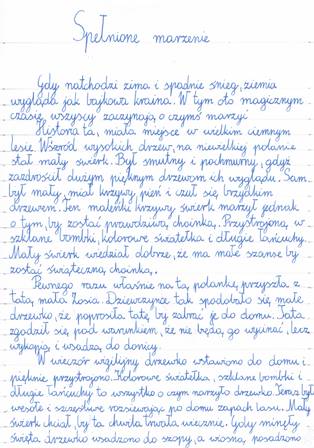 Spełnione marzenie
Gdy nadchodzi zima i spadnie śnieg, ziemia
wygląda jak bajkowa kraina. W tym oto magicznym
czasie, wszyscy zaczynają o czymś marzyć.
Historia ta, miała miejsce w wielkim ciemnym
lesie. Wśród wysokich drzew, na niewielkiej polanie
stał mały świerk. Był smutny i pochmurny, gdyż
zazdrościł dużym pięknym drzewom ich wyglądu. Sam
był mały, miał krzywy pień i czuł się brzydkim
drzewem. Ten maleńki krzywy świerk marzył jednak
o tym, by zostać prawdziwą choinką. Przystrojoną, w
szklane bombki, kolorowe światełka i długie łańcuchy.
Mały świerk wiedział dobrze, że ma małe szanse by
zostać świąteczną choinką.
Pewnego razu właśnie na tą polankę, przyszła z
tatą, mała Zosia. Dziewczynce tak spodobało się małe
drzewko, że poprosiła tatę by zabrać je do domu. Tata
zgodził się, pod warunkiem, że nie będą go wycinać, lecz
wykopią i wsadzą do donicy.
W wieczór wigilijny drzewko ustawiono do domu i
pięknie przystrojono. Kolorowe światełka, szklane bombki i
długie łańcuchy to wszystko o czym marzyło drzewko. Teraz był
wesołe i szczęśliwe rozsiewając po domu zapach lasu. Mały
świerk chciał, by ta chwila trwała wiecznie. Gdy minęły
święta drzewko wsadzono do szopy, a wiosną, posadzono